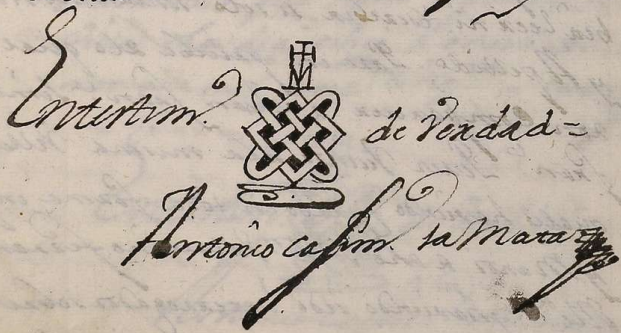 En testim.º de Verdad=
Antonio Casim. la Mata